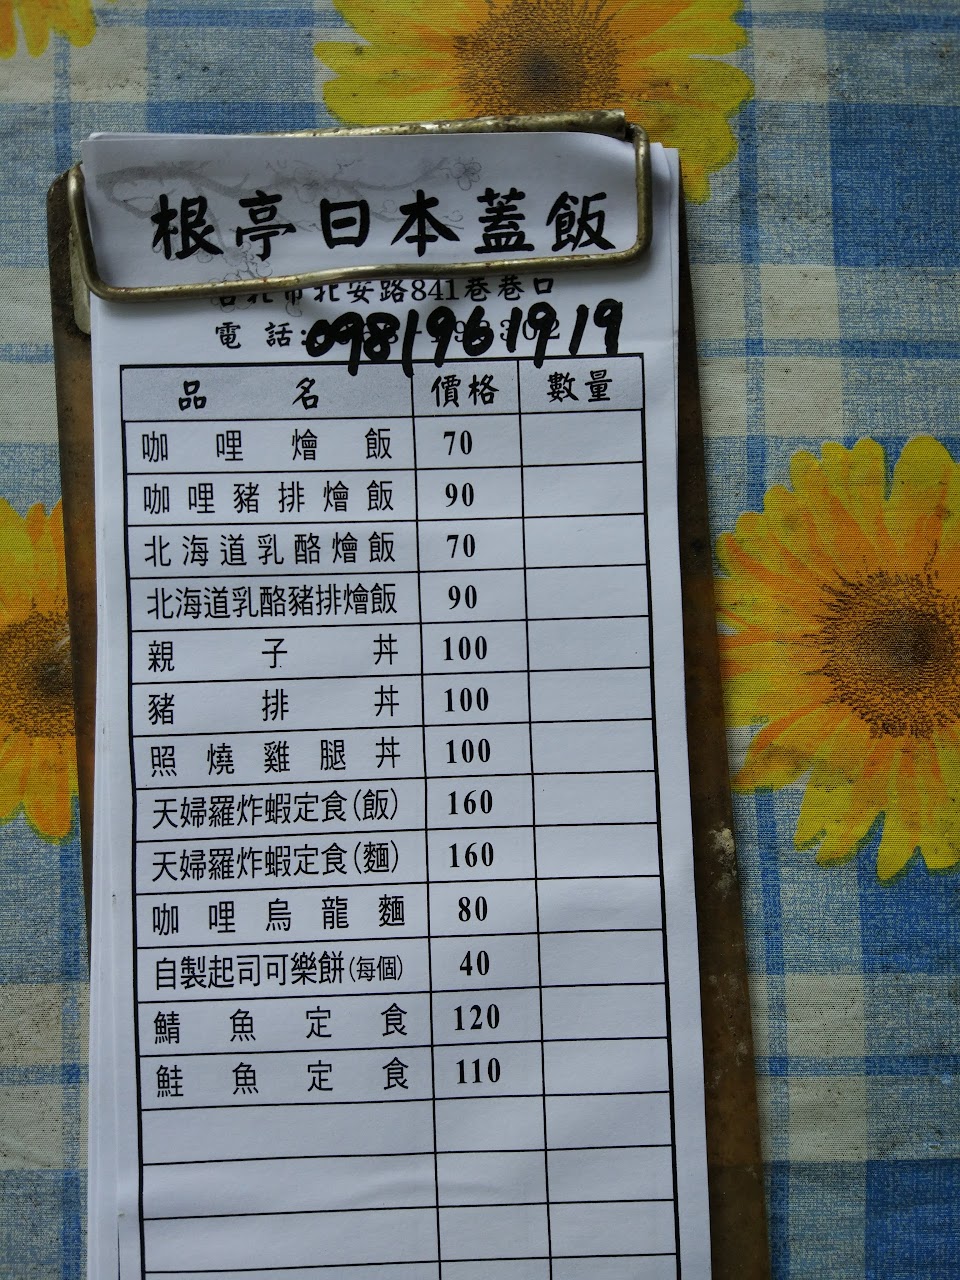 根亭日本蓋飯
台北市北安路841巷巷口
電話:0981961919
品名 價格 數量
咖哩燴飯 70
咖哩豬排燴飯 90
北海道乳酪燴飯 70
北海道乳酪豬排燴飯 90
親子丼 100
豬排丼 100
照燒雞腿丼 100
天婦羅炸蝦定食(飯) 160
天婦羅炸蝦定食(麵) 160
咖哩烏龍麵 80
自製起司可樂餅(每個) 40
鯖魚定食 120
鮭魚定食 110